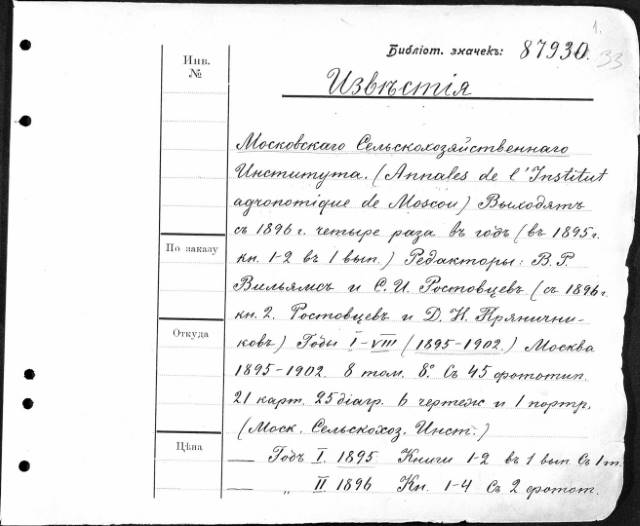 1.
Библіот. значекъ: 87930. 33
Инв.
№
Извѣстія
Московскаго Сельскохозяйственнаго
Института. (Annales de l'Institut
agronomique de Moscou) Выходятъ
съ 1896 г. четыре раза въ годъ (въ 1895 г.
По заказу
кн. 1-2 въ 1 вып.) Редакторы: В. Р.
Вильямсъ и С. И. Ростовцевъ (съ 1896 г.
кн. 2. Ростовцевъ и Д. Н. Прянични-
Откуда
ковъ) Годы I-VIII (1895-1902.) Москва
1895-1902. 8 том. 8º. Съ 45 фототип.
21 карт. 25 діагр. 6 чертеж и 1 портр.
(Моск. Сельскохоз. Инст.)
Цѣна
— Годъ I. 1895 Книги 1-2 въ 1 вып Съ 1 т.
„ II 1896 Кн. 1-4 Съ 2 фотот.